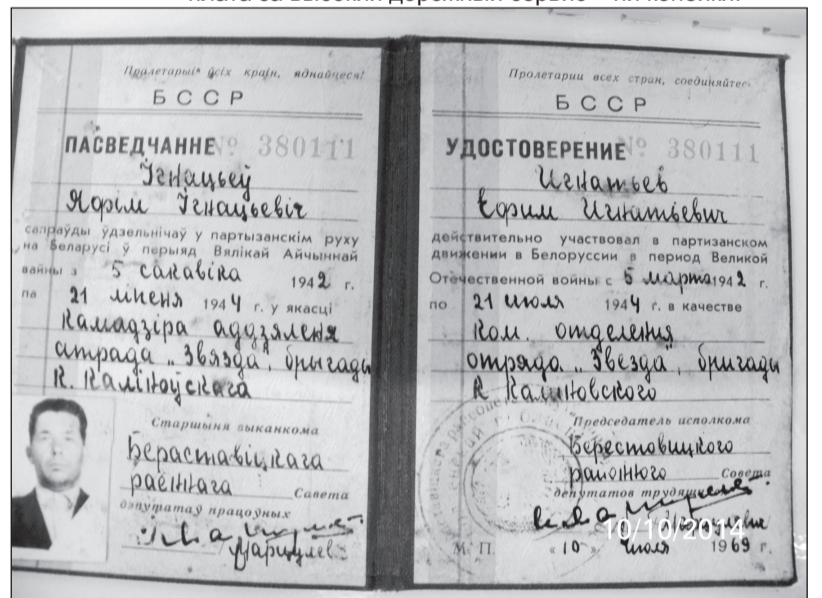 плата за высокий дорожный сервис – ни копейки.
Пралетарыі ўсіх краін, яднайцеся!
БССР
ПАСВЕДЧАННЕ № 380111
Ігнацьеў
Яфім Ігнацьевіч
сапраўды ўдзельнічаў у партызанскім руху
на Беларусі ў перыяд Вялікай Айчыннай
вайны з 5 сакавіка 1942 г.
па 21 ліпеня 1944 г. у якасці
Камадзіра аддзялення
атрада „Звязда", брыгады
К. Каліноўскага
Старшыня выканкома
Бераставіцкага
раённага Савета
дэпутатаў працоўных
Пролетарии всех стран, соединяйтесь
БССР
УДОСТОВЕРЕНИЕ № 380111
Игнатьев
Ефим Игнатьевич
действительно участвовал в партизанском
движении в Белоруссии в период Великой
Отечественной войны с 5 марта 1942 г.
по 21 июля 1944 г. в качестве
Ком. отделения
отряда „Звезда", бригады
К Калиновского
Председатель исполкома
Берестовицкого
районного Совета
депутатов трудящихся
10/10/2014
М. П. « 10 » июля 1969 г.